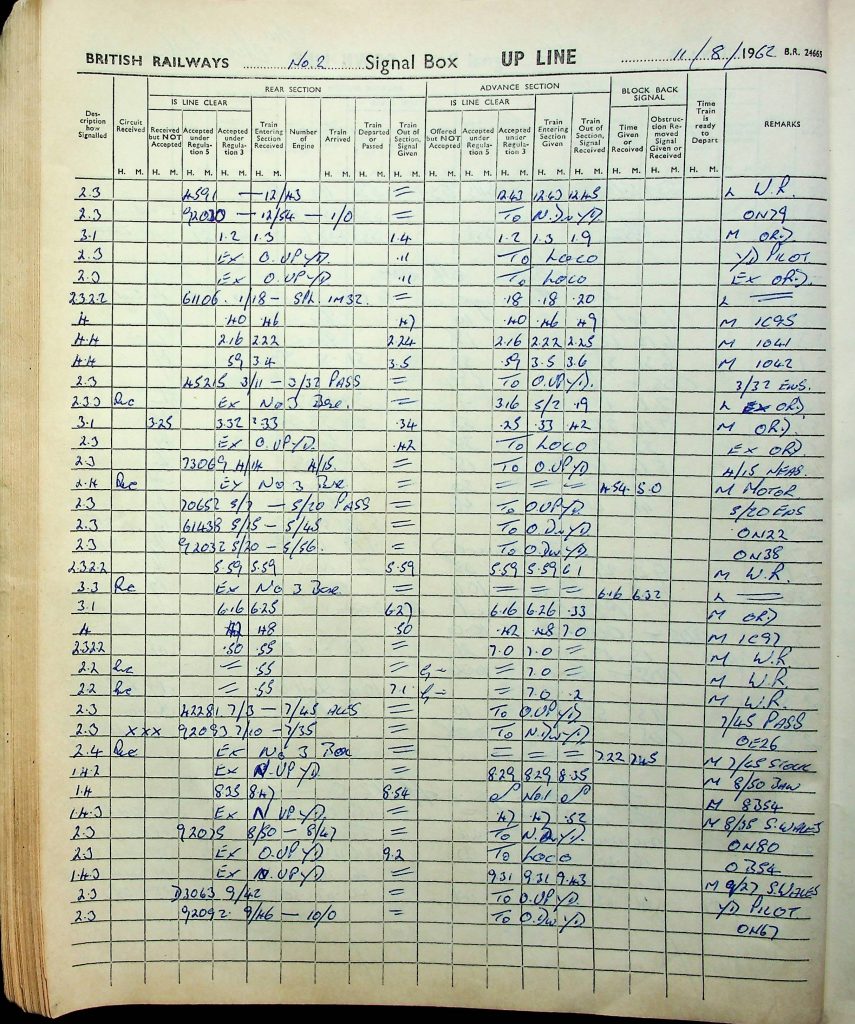 BRITISH RAILWAYS No.2 Signal Box UP LINE 11/8/1962 B.R. 24663
REAR SECTION ADVANCE SECTION BLOCK BACK SIGNAL
IS LINE CLEAR IS LINE CLEAR
Description how Signalled Circuit Received Received but NOT Accepted Accepted under Regulation 5 Accepted under Regulation 3 Train Entering Section Received Number of Engine Train Arrived Train Departed or Passed Train Out of Section, Signal Given Offered but NOT Accepted Accepted under Regulation 5 Accepted under Regulation 3 Train Entering Section Given Train Out of Section, Signal Received Time Given or Received Obstruction Removed Signal Given or Received Time Train is ready to Depart REMARKS
H. M. H. M. H. M. H. M. H. M. H. M. H. M. H. M. H. M. H. M. H. M. H. M. H. M. H. M. H. M. H. M.
2.3 4591 — 12/43 = 1243 1243 1245 L W.R.
2.3 — 12/54 — 1/0 = To N.Dn YD ON79
3.1 1.2 1.3 1.4 1.2 1.3 1.9 M ORD
2.3 Ex O.UP YD. .11 To LOCO YD PILOT
2.3 Ex O.UP YD. .11 To LOCO Ex ORD.
2322 61106. 1/18 — SPL 1M32. = .18 .18 .20 L =
4 .40 .46 .47 .40 .46 .49 M 1C95
4.4 2.16 222 224 2.16 2.22 2.25 M 1041
4.4 .59 3.4 3.5 .59 3.5 3.6 M 1042
2.3 45215 3/11 — 3/32 PASS = To O.UP YD. 3/32 ENS.
2.3.3 Rec Ex No 3 Box. = 316 5/2 .19 L ORD
3.1 3.25 3.32 3.33 .34 .25 .33 .42 M ORD
2.3 Ex O.UP YD. .42 To LOCO Ex ORD
2.3 73069 4/14 4/15. = To O.UP YD 4/15 NEAS.
2.4 Rec Ex No 3 Box = = = = 454. 5.0 M MOTOR
2.3 70652 5/7 — 5/20 PASS = To O.UP YD. 5/20 ENS
2.3 61438 5/15 — 5/45 = To O.Dn YD ON22
2.3 92032 5/20 — 5/56. = To O.Dn YD ON38
2322 5.59 5.59 5.59 5.59 5.59 6.1 M W.R.
3.3 Rec Ex No 3 Box. = = = = 616 632 L =
3.1 6.16 6.25 6.27 6.16 6.26 .33 M ORD
4 .42 .48 .50 .42 .48 7.0 M 1C97
2322 .50 .55 = 7.0 7.0 = M W.R.
2.2 Rec = .55 = 7.0 = M W.R.
2.2 Rec = .55 7.1 = 7.0 .2 M W.R.
2.3 42281 7/3 — 7/45 = To O.UP YD 7/45 PASS
2.3 xxx 92093 7/10 — 7/35 = To N.Dn YD OE26
2.4 Rec Ex No 3 Box = = = = 722 745 M 7/45 STOCK
1.4.2 Ex N.UP YD. = 8.29 8.29 8.35 M 8/50
1.4 835 847 8.54 No.1 M 8B54
1.4.3 Ex N UP YD. = .47 .47 .52 M 8/35 S.WALES
2.3 92075 8/50 — 8/47 = To N.Dn YD. ON80
2.3 Ex O.UP YD 9.2 To LOCO OB54
1.4.3 Ex N.UP YD. = 931 931 9.43 M 9/27 S.WALES
2.3 D3063 9/42 = To O.UP YD. YD PILOT
2.3 92092. 9/46 — 10/0 = To O.Dn YD. ON67